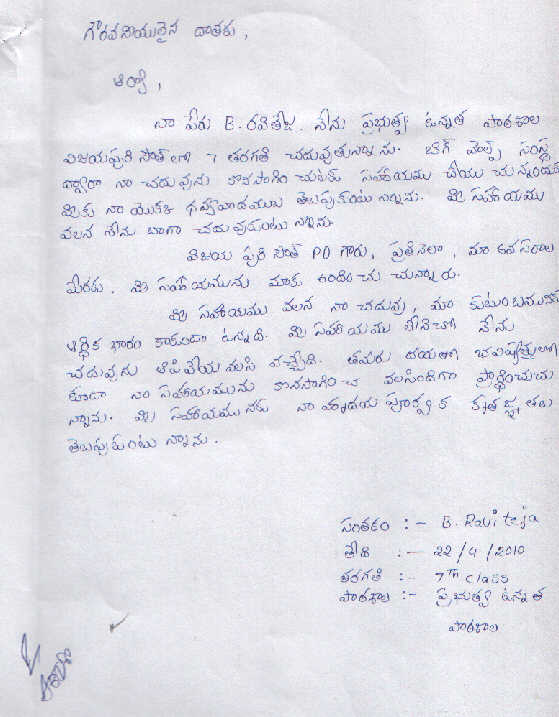 గౌరవనీయులైన దాతకు,
ఆర్యా,
నా పేరు B. రవితేజ. నేను ప్రభుత్వ ఉన్నత పాఠశాల
విజయపురి సౌత్ లో 7 తరగతి చదువుతున్నాను.
ద్వారా నా చదువును కొనసాగించుటకు సహాయము చేయుచున్నందుకు
మీకు నా యొక్క ధన్యవాదములు తెలుపుకుంటున్నాను. మీ సహాయము
వలన నేను బాగా చదువుకుంటున్నాను.
విజయ పురి సౌత్ PD గారు, ప్రతినెలా, మా అవసరాల
మేరకు మీ సహాయమును మాకు అందించుచున్నారు.
మీ సహాయము వలన నా చదువు, మా కుటుంబమునకు
ఆర్థిక భారం కాకుండా ఉన్నది. మీ సహాయము లేనిచో నేను
చదువును ఆపివేయవలసి వచ్చేది. తమరు దయతో భవిష్యత్తులో
కూడా నా సహాయమును కొనసాగించ వలసిందిగా ప్రార్థించుచు
న్నాను. మీ సహాయమునకు నా హృదయ పూర్వక కృతజ్ఞతలు
తెలుపుకుంటున్నాను.
సంతకం :- B. Ravi teja
తేది :- 22/4/2010
తరగతి :- 7th class
పాఠశాల :- ప్రభుత్వ ఉన్నత
పాఠశాల